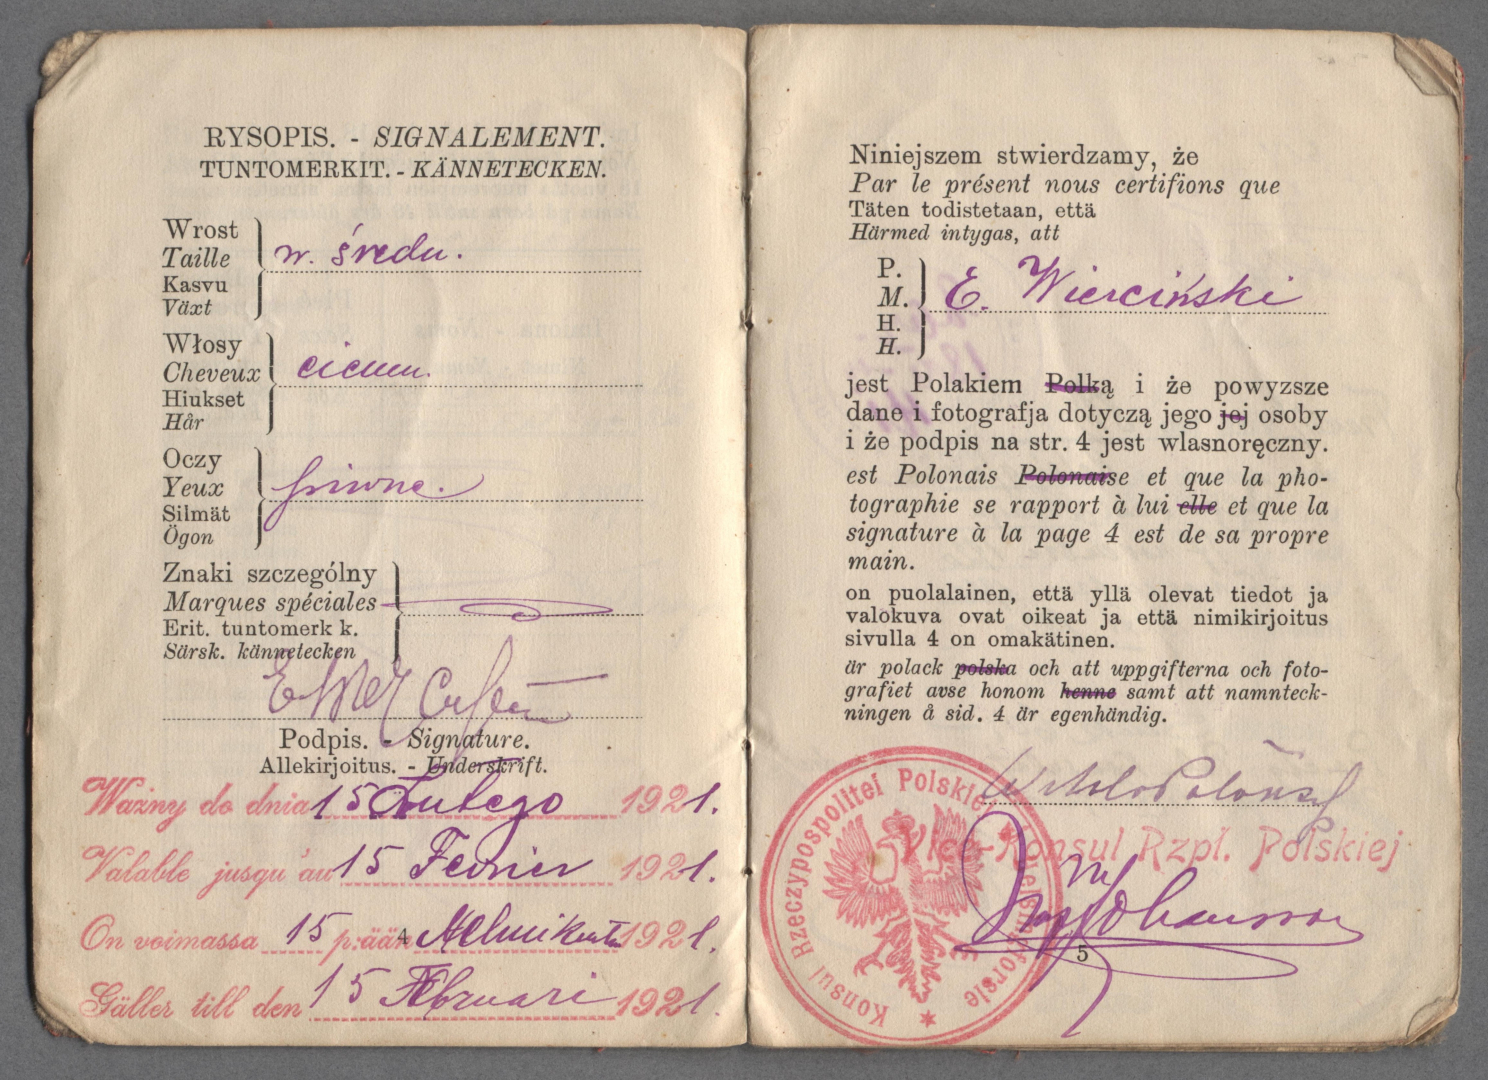 RYSOPIS. - SIGNALEMENT.
TUNTOMERKIT. - KÄNNETECKEN.
Wrost
Taille
Kasvu
Växt
w. średn.
Włosy
Cheveux
Hiukset
Hår
ciemn.
Oczy
Yeux
Silmät
Ögon
piwne.
Znaki szczególny
Marques spéciales
Erit. tuntomerk k.
Särsk. kännetecken
Podpis. - Signature.
Allekirjoitus. - Underskrift.
Ważny do dnia 15 Lutego 1921.
Valable jusqu'au 15 Fevrier 1921.
On voimassa 15 p:ään Helmikuuta 1921.
4
Gäller till den 15 Februari 1921.
Niniejszem stwierdzamy, że
Par le présent nous certifions que
Täten todistetaan, että
Härmed intygas, att
P.
M.
H.
H.
E. Wierciński
jest Polakiem Polką i że powyzsze
dane i fotografja dotyczą jego jej osoby
i że podpis na str. 4 jest wlasnoręczny.
est Polonais Polonaise et que la pho-
tographie se rapport à lui elle et que la
signature à la page 4 est de sa propre
main.
on puolalainen, että yllä olevat tiedot ja
valokuva ovat oikeat ja että nimikirjoitus
sivulla 4 on omakätinen.
är polack polska och att uppgifterna och foto-
grafiet avse honom henne samt att namnteck-
ningen å sid. 4 är egenhändig.
Vice-Konsul Rzpl. Polskiej
Konsul Rzeczypospolitej Polskiej w Helsingforsie
5